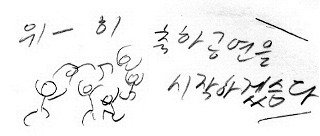 위 - 히
축하공연을
시작하겠습다